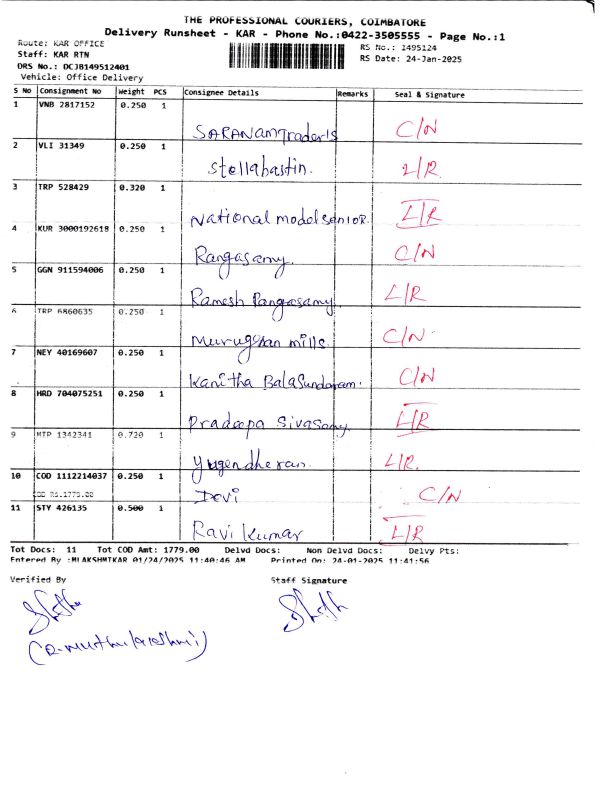 THE PROFESSIONAL COURIERS, COIMBATORE
Delivery Runsheet - KAR - Phone No.:0422-3505555 - Page No.:1
Route: KAR OFFICE
RS No.: 1495124
Staff: KAR RTN
RS Date: 24-Jan-2025
DRS No.: DCJB149512401
Vehicle: Office Delivery
S No Consignment No Weight PCS Consignee Details Remarks Seal & Signature
1 VNB 2817152 0.250 1
SARANAM Traders C/N
2 VLI 31349 0.250 1
Stellabastin. L/R
3 TRP 528429 0.320 1
National model senior. L/R
4 KUR 3000192618 0.250 1
Rangasamy. C/N
5 GGN 911594006 0.250 1
Ramesh Rangasamy. L/R
6 TRP 6860635 0.250 1
Murugan mills. C/N
7 NEY 40169607 0.250 1
Kanitha BalaSundaram. C/N
8 HRD 704075251 0.250 1
Pradeepa Sivasamy. L/R
9 MTP 1342341 0.720 1
Yugendheran. L/R.
10 COD 1112214037 0.250 1
COD Rs.1779.00 Devi C/N
11 STY 426135 0.500 1
Ravi Kumar L/R
Tot Docs: 11 Tot COD Amt: 1779.00 Delvd Docs: Non Delvd Docs: Delvy Pts:
Entered By :MLAKSHMIKAR 01/24/2025 11:40:46 AM Printed On: 24-01-2025 11:41:56
Verified By Staff Signature